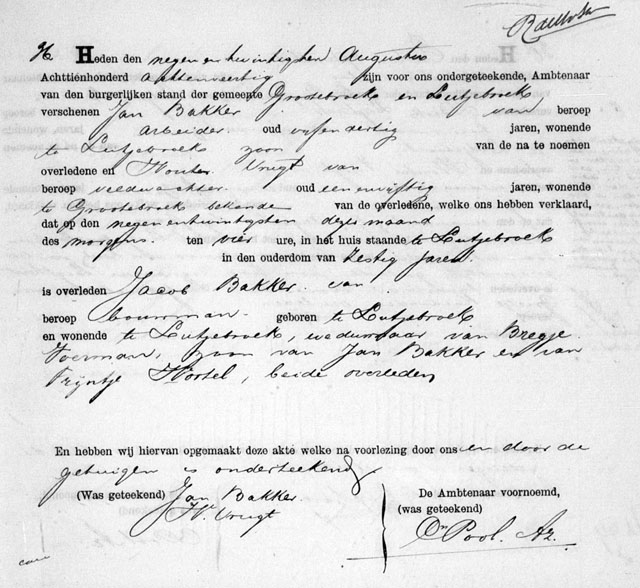 Heden den negen en twintigsten Augustus
Achttienhonderd achtenveertig zijn voor ons ondergeteekende, Ambtenaar
van den burgerlijken stand der gemeente Grootebroek en Lutjebroek
verschenen Jan Bakker van beroep
arbeider oud vijfendertig jaren, wonende
te Lutjebroek zoon van de na te noemen
overledene en Houter Vrugt van
beroep veldwachter oud eenenvijftig jaren, wonende
te Grootebroek bekende van de overledene, welke ons hebben verklaard,
dat op den negenentwintigsten dezer maand
des morgens ten vier ure, in het huis staande te Lutjebroek
in den ouderdom van Zestig jaren
is overleden Jacob Bakker van
beroep bouwman geboren te Lutjebroek
en wonende te Lutjebroek, weduwnaar van Bregje
Voerman, zoon van Jan Bakker en van
Trijntje Hostel, beide overleden
En hebben wij hiervan opgemaakt deze akte welke na voorlezing door ons en door de
getuigen is onderteekend
(Was geteekend) Jan Bakker
De Ambtenaar voornoemd,
Hr. Vrugt
(was geteekend)
Dn. Pool. Az.